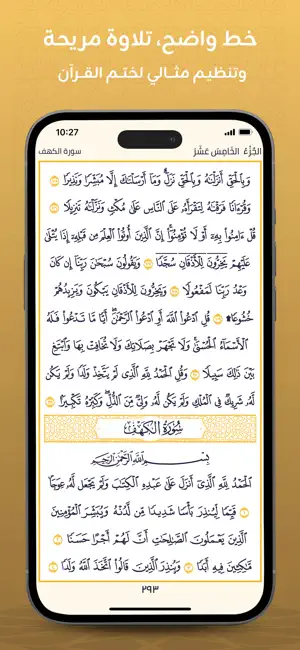 خط واضح، تلاوة مريحة
وتنظيم مثالي لختم القرآن
10:27
الجُزْءُ الخَامِسَ عَشَرَ
سورة الكهف
وَبِالْحَقِّ أَنزَلْنَاهُ وَبِالْحَقِّ نَزَلَ وَمَا أَرْسَلْنَاكَ إِلَّا مُبَشِّرًا وَنَذِيرًا
وَقُرْءَانًا فَرَقْنَاهُ لِتَقْرَأَهُ عَلَى النَّاسِ عَلَى مُكْثٍ وَنَزَّلْنَاهُ تَنزِيلًا
قُلْ ءَامِنُوا بِهِ أَوْ لَا تُؤْمِنُوا إِنَّ الَّذِينَ أُوتُوا الْعِلْمَ مِن قَبْلِهِ إِذَا يُتْلَىٰ
عَلَيْهِمْ يَخِرُّونَ لِلْأَذْقَانِ سُجَّدًا وَيَقُولُونَ سُبْحَٰنَ رَبِّنَا إِن كَانَ
وَعْدُ رَبِّنَا لَمَفْعُولًا وَيَخِرُّونَ لِلْأَذْقَانِ يَبْكُونَ وَيَزِيدُهُمْ
خُشُوعًا۩ قُلِ ادْعُوا اللَّهَ أَوِ ادْعُوا الرَّحْمَٰنَ أَيًّا مَّا تَدْعُوا فَلَهُ
الْأَسْمَاءُ الْحُسْنَىٰ وَلَا تَجْهَرْ بِصَلَاتِكَ وَلَا تُخَافِتْ بِهَا وَابْتَغِ
بَيْنَ ذَٰلِكَ سَبِيلًا وَقُلِ الْحَمْدُ لِلَّهِ الَّذِي لَمْ يَتَّخِذْ وَلَدًا وَلَمْ يَكُن
لَّهُ شَرِيكٌ فِي الْمُلْكِ وَلَمْ يَكُن لَّهُ وَلِيٌّ مِّنَ الذُّلِّ وَكَبِّرْهُ تَكْبِيرًا
سُورَةُ الكَهْفِ
بِسْمِ اللَّهِ الرَّحْمَٰنِ الرَّحِيمِ
الْحَمْدُ لِلَّهِ الَّذِي أَنزَلَ عَلَىٰ عَبْدِهِ الْكِتَٰبَ وَلَمْ يَجْعَل لَّهُ عِوَجَا
قَيِّمًا لِّيُنذِرَ بَأْسًا شَدِيدًا مِّن لَّدُنْهُ وَيُبَشِّرَ الْمُؤْمِنِينَ
الَّذِينَ يَعْمَلُونَ الصَّٰلِحَٰتِ أَنَّ لَهُمْ أَجْرًا حَسَنًا
مَّٰكِثِينَ فِيهِ أَبَدًا وَيُنذِرَ الَّذِينَ قَالُوا اتَّخَذَ اللَّهُ وَلَدًا
٢٩٣